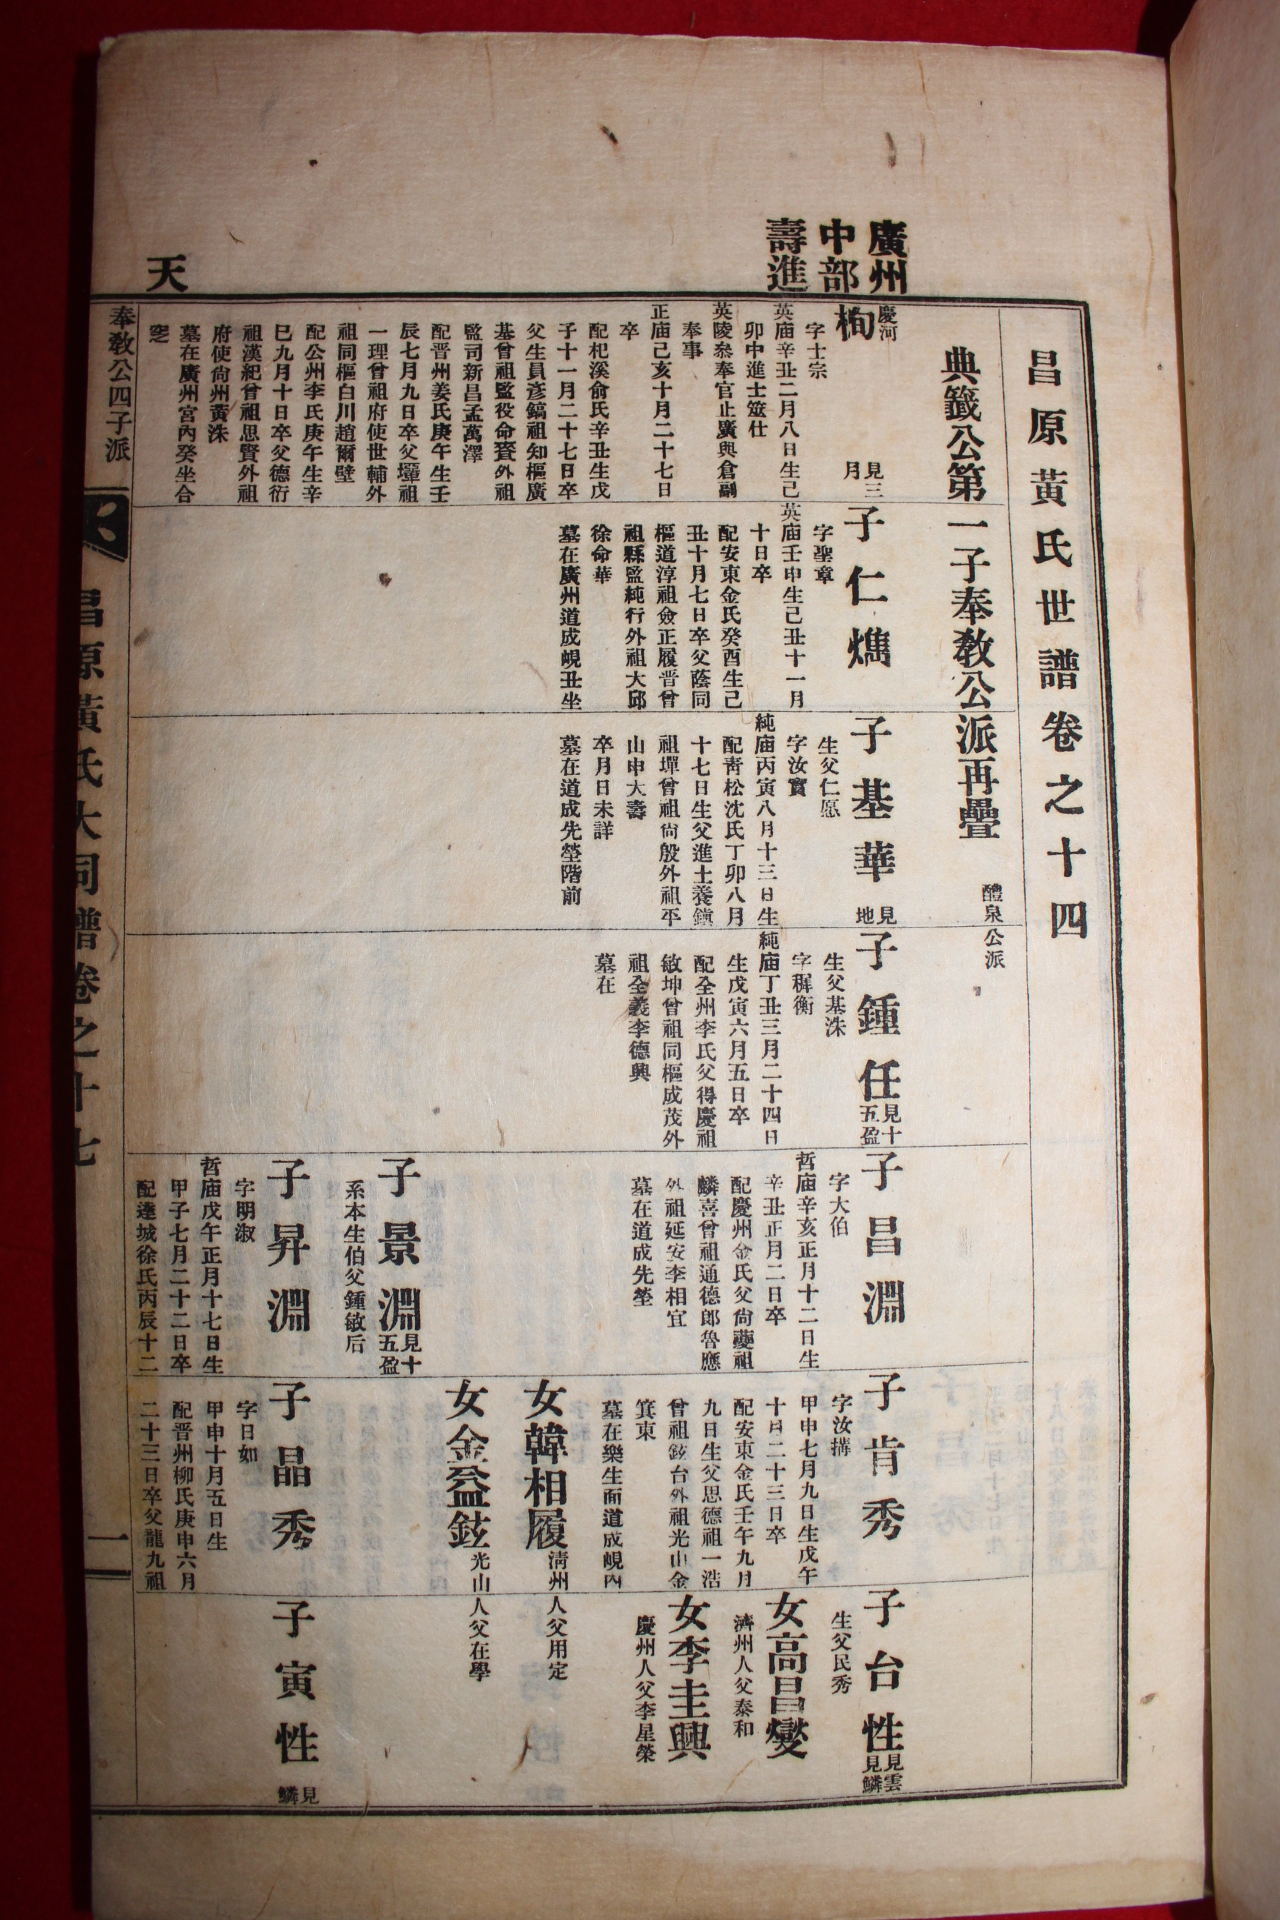 廣州
中部
壽進
天
昌原黃氏世譜卷之十四
典籤公第一子奉教公派再疊
醴泉公派
慶河
栒
見三月
字士宗
英庙辛丑二月八日生己
卯中進士筮仕
英陵叅奉官止廣興倉副
奉事
正庙己亥十月二十七日
卒
配杞溪俞氏辛丑生戊
子十一月二十七日卒
父生員彥鎬祖知樞廣
基曾祖監役命賚外祖
監司新昌孟萬澤
配晋州姜氏庚午生壬
辰七月九日卒父墀祖
一理曾祖府使世輔外
祖同樞白川趙爾壁
配公州李氏庚午生辛
巳九月十日卒父德衍
祖漢紀曾祖思賢外祖
府使尙州黃洙
墓在廣州宮內癸坐合
窆
子仁燋
字聖章
英庙壬申生己丑十一月
十日卒
配安東金氏癸酉生己
丑十月七日卒父蔭同
樞道淳祖僉正履晋曾
祖縣監純行外祖大邱
徐命華
墓在廣州道成峴丑坐
子基華
見地
生父仁愿
字汝實
純庙丙寅八月十三日生
配靑松沈氏丁卯八月
十七日生父進士養鎭
祖墠曾祖尙殷外祖平
山申大壽
卒月日未詳
墓在道成先塋階前
子鍾任
見十五盈
生父基洙
字穉衡
純庙丁丑三月二十四日
生戊寅六月五日卒
配全州李氏父得慶祖
敏坤曾祖同樞成茂外
祖全義李德興
墓在
子昌淵
字大伯
哲庙辛亥正月十二日生
辛丑正月二日卒
配慶州金氏父尙虁祖
麟喜曾祖通德郎魯應
外祖延安李相宜
墓在道成先塋
子景淵
見十五盈
系本生伯父鍾敏后
子昇淵
字明淑
哲庙戊午正月十七日生
甲子七月二十二日卒
配達城徐氏丙辰十二
子肯秀
字汝搆
甲申七月九日生戊午
十月二十三日卒
配安東金氏壬午九月
九日生父思德祖一浩
曾祖鉉台外祖光山金
箕東
墓在樂生面道成峴內
女韓相履
淸州人父用定
女金益鉉
光山人父在學
子晶秀
字日如
甲申十月五日生
配晋州柳氏庚申六月
二十三日卒父龍九祖
子台性
見雲見鱗
生父民秀
女高昌燮
濟州人父泰和
女李圭興
慶州人父李星榮
子寅性
見鱗
奉教公四子派
昌原黃氏大同譜卷之十七
一